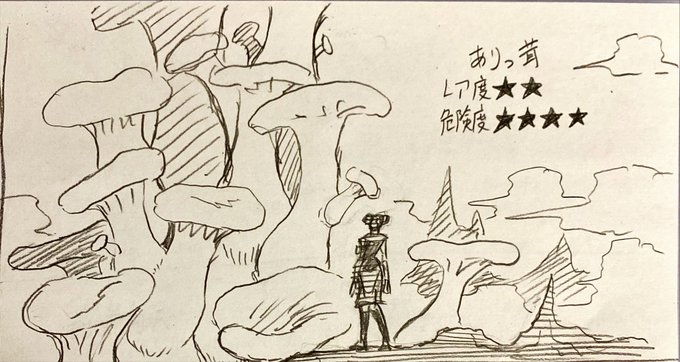 ありっ茸
レア度★★
危険度★★★★